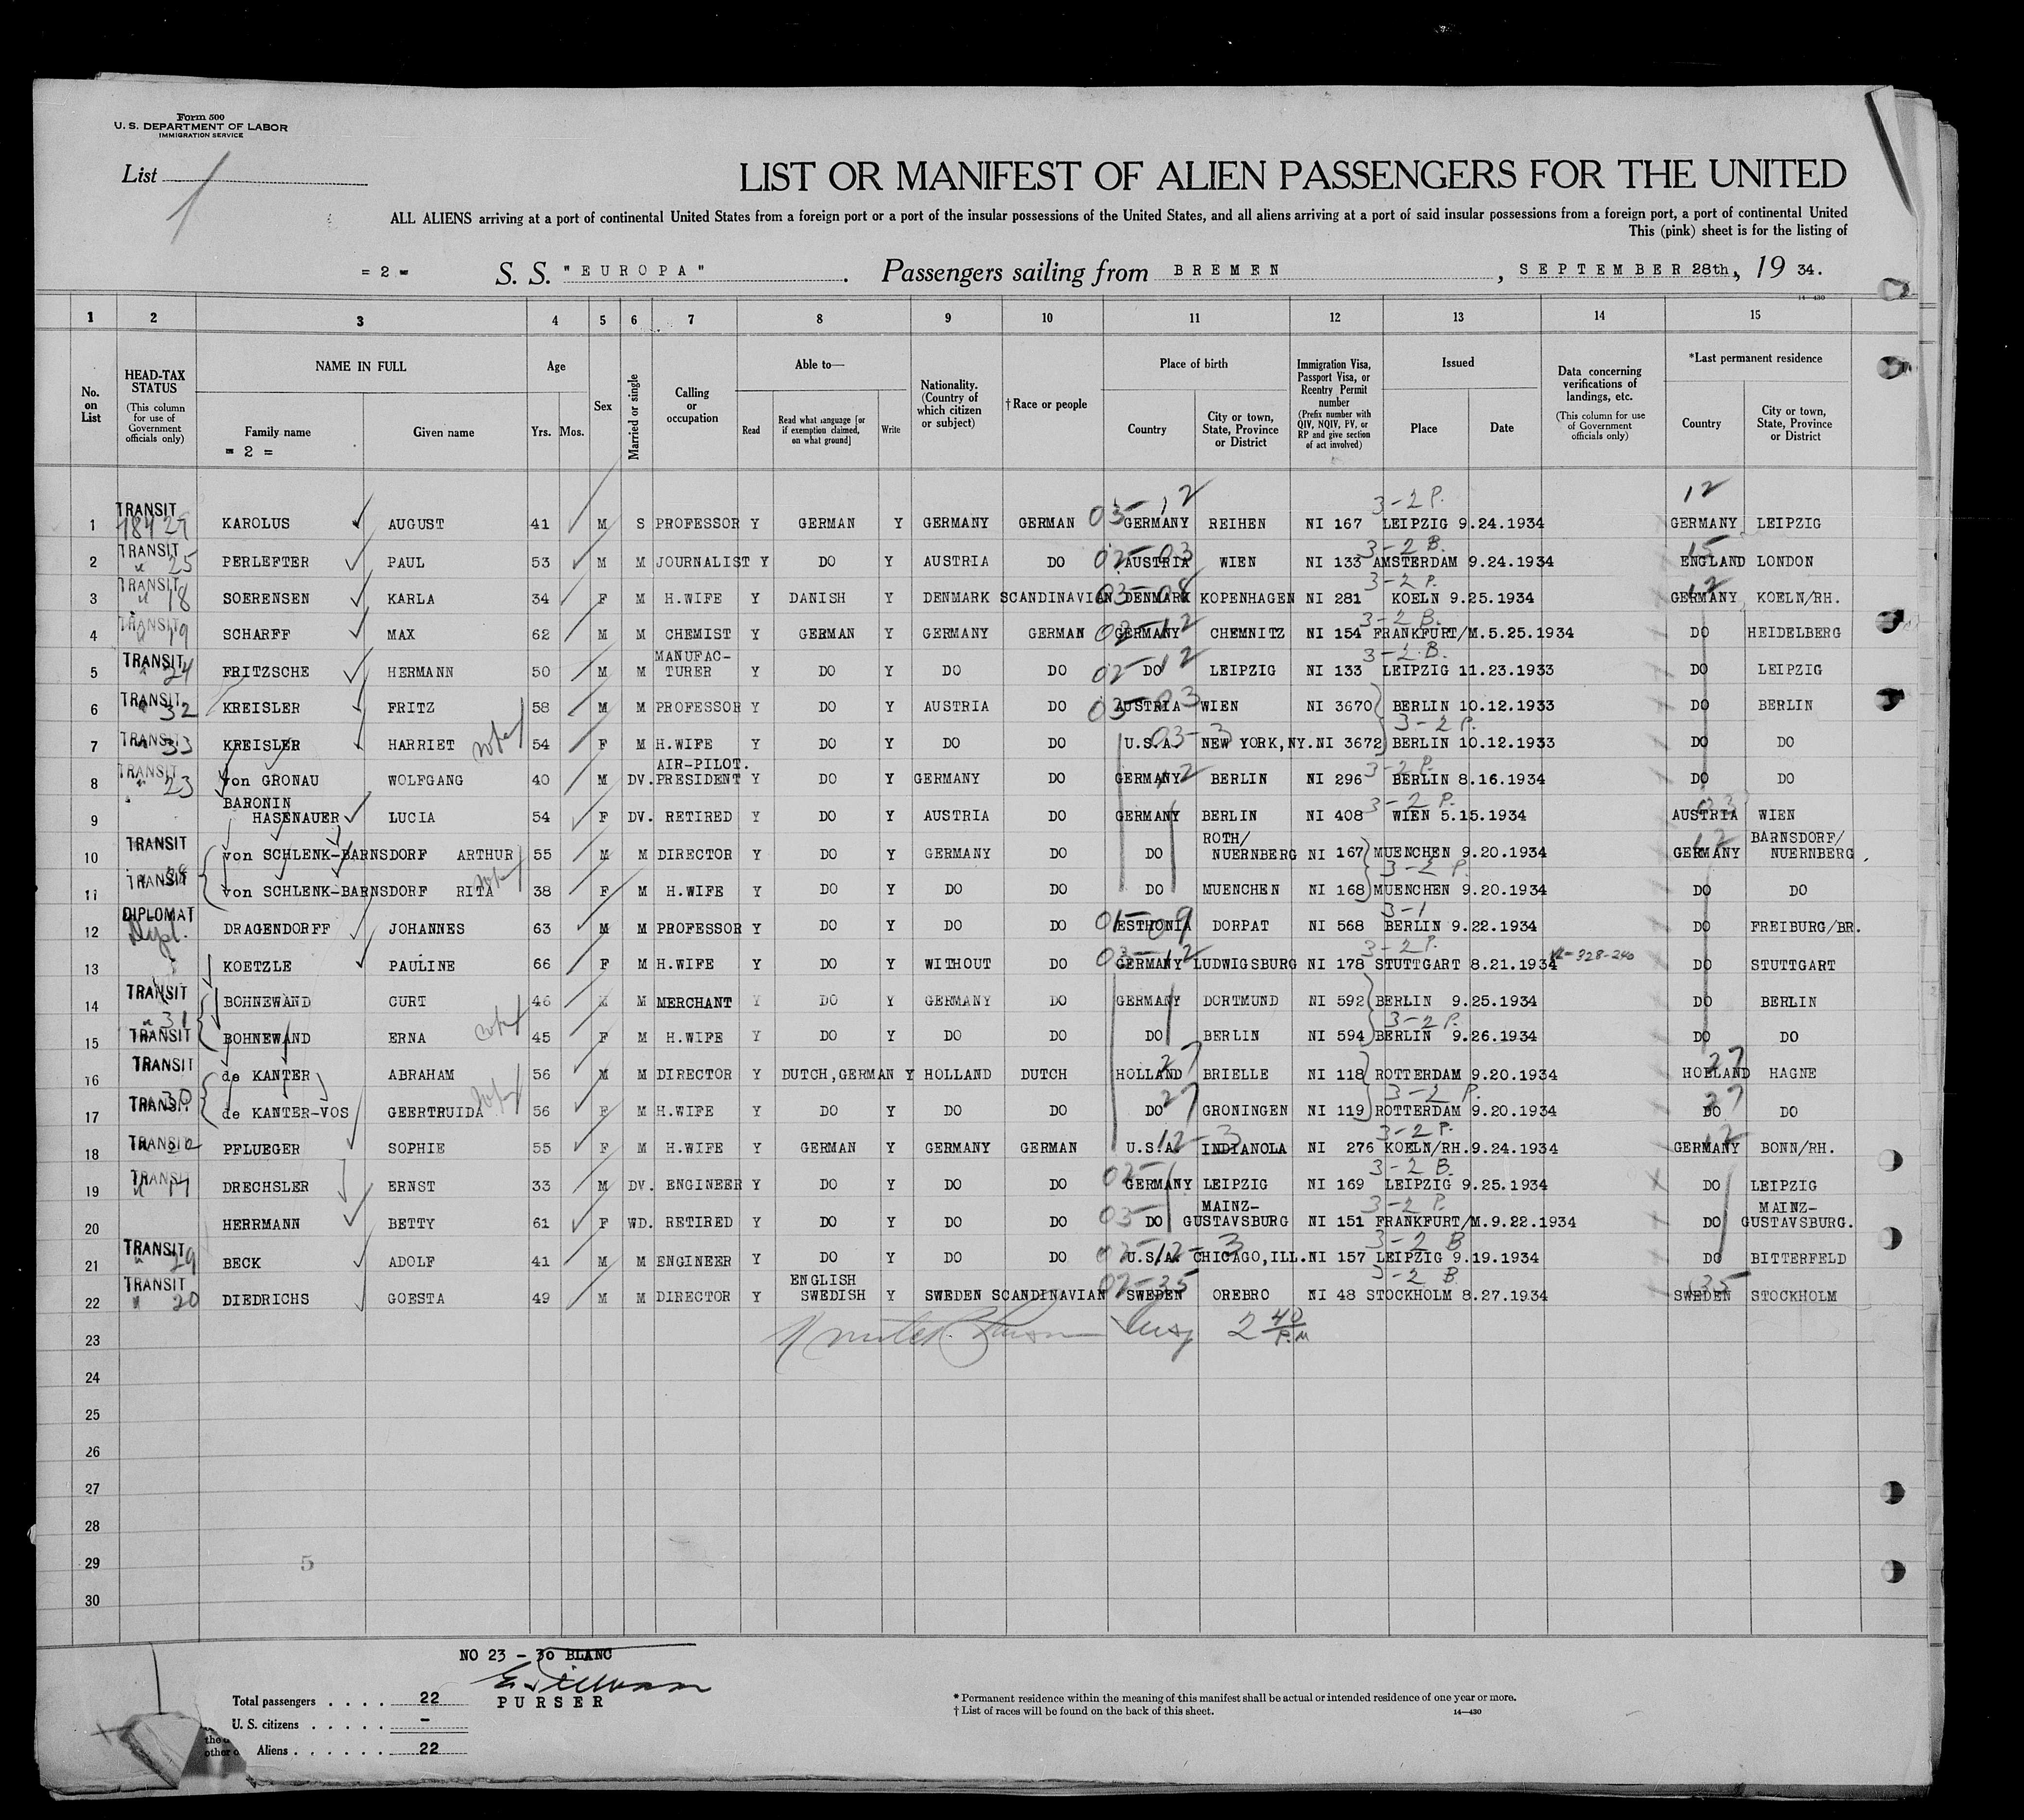 Form 500
U. S. DEPARTMENT OF LABOR
IMMIGRATION SERVICE
List 1
LIST OR MANIFEST OF ALIEN PASSENGERS FOR THE UNITED
ALL ALIENS arriving at a port of continental United States from a foreign port or a port of the insular possessions of the United States, and all aliens arriving at a port of said insular possessions from a foreign port, a port of continental United
This (pink) sheet is for the listing of
= 2 = S. S. "EUROPA" . Passengers sailing from BREMEN , SEPTEMBER 28th, 19 34.
14—430
1 2 3 4 5 6 7 8 9 10 11 12 13 14 15
No. on List
HEAD-TAX STATUS (This column for use of Government officials only)
NAME IN FULL
Family name
= 2 =
Given name
Age
Yrs. Mos.
Sex
Married or single
Calling or occupation
Able to—
Read
Read what language [or if exemption claimed, on what ground]
Write
Nationality. (Country of which citizen or subject)
†Race or people
Place of birth
Country
City or town, State, Province or District
Immigration Visa, Passport Visa, or Reentry Permit number (Prefix number with QIV, NQIV, PV, or RP and give section of act involved)
Issued
Place
Date
Data concerning verifications of landings, etc. (This column for use of Government officials only)
*Last permanent residence
Country
City or town, State, Province or District
03-12 3-2 P. 12
1 TRANSIT 18427 KAROLUS AUGUST 41 M S PROFESSOR Y GERMAN Y GERMANY GERMAN GERMANY REIHEN NI 167 LEIPZIG 9.24.1934 GERMANY LEIPZIG
02-03 3-2 B. 15
2 TRANSIT 25 PERLEFTER PAUL 53 M M JOURNALIST Y DO Y AUSTRIA DO AUSTRIA WIEN NI 133 AMSTERDAM 9.24.1934 ENGLAND LONDON
03-08 3-2 P. 12
3 TRANSIT 18 SOERENSEN KARLA 34 F M H.WIFE Y DANISH Y DENMARK SCANDINAVIAN DENMARK KOPENHAGEN NI 281 KOELN 9.25.1934 GERMANY KOELN/RH.
02-12 3-2 B.
4 TRANSIT 19 SCHARFF MAX 62 M M CHEMIST Y GERMAN Y GERMANY GERMAN GERMANY CHEMNITZ NI 154 FRANKFURT/M. 5.25.1934 DO HEIDELBERG
02-12 3-2 B.
5 TRANSIT 24 FRITZSCHE HERMANN 50 M M MANUFAC-TURER Y DO Y DO DO DO LEIPZIG NI 133 LEIPZIG 11.23.1933 DO LEIPZIG
03-03
6 TRANSIT 32 KREISLER FRITZ 58 M M PROFESSOR Y DO Y AUSTRIA DO AUSTRIA WIEN NI 3670 BERLIN 10.12.1933 DO BERLIN
03-3 3-2 P.
7 TRANSIT 33 KREISLER HARRIET 54 F M H.WIFE Y DO Y DO DO U.S.A. NEW YORK,NY. NI 3672 BERLIN 10.12.1933 DO DO
12 3-2 P.
8 TRANSIT 23 von GRONAU WOLFGANG 40 M DV. AIR-PILOT. PRESIDENT Y DO Y GERMANY DO GERMANY BERLIN NI 296 BERLIN 8.16.1934 DO DO
3-2 P.
9 BARONIN HASENAUER LUCIA 54 F DV. RETIRED Y DO Y AUSTRIA DO GERMANY BERLIN NI 408 WIEN 5.15.1934 AUSTRIA WIEN
12
10 TRANSIT von SCHLENK-BARNSDORF ARTHUR 55 M M DIRECTOR Y DO Y GERMANY DO DO ROTH/NUERNBERG NI 167 MUENCHEN 9.20.1934 GERMANY BARNSDORF/NUERNBERG
3-2 P.
11 TRANSIT von SCHLENK-BARNSDORF RITA 38 F M H.WIFE Y DO Y DO DO DO MUENCHEN NI 168 MUENCHEN 9.20.1934 DO DO
01-09 3-1
12 DIPLOMAT Dipl. DRAGENDORFF JOHANNES 63 M M PROFESSOR Y DO Y DO DO ESTHONIA DORPAT NI 568 BERLIN 9.22.1934 DO FREIBURG/BR.
03-12 3-2 P.
13 KOETZLE PAULINE 66 F M H.WIFE Y DO Y WITHOUT DO GERMANY LUDWIGSBURG NI 178 STUTTGART 8.21.1934 DO STUTTGART
14 TRANSIT BOHNEWAND CURT 46 M M MERCHANT Y DO Y GERMANY DO GERMANY DORTMUND NI 592 BERLIN 9.25.1934 DO BERLIN
31 3-2 P.
15 TRANSIT BOHNEWAND ERNA 45 F M H.WIFE Y DO Y DO DO DO BERLIN NI 594 BERLIN 9.26.1934 DO DO
27 27
16 TRANSIT de KANTER ABRAHAM 56 M M DIRECTOR Y DUTCH,GERMAN Y HOLLAND DUTCH HOLLAND BRIELLE NI 118 ROTTERDAM 9.20.1934 HOLLAND HAGNE
27 3-2 P. 27
17 TRANSIT 30 de KANTER-VOS GEERTRUIDA 56 F M H.WIFE Y DO Y DO DO DO GRONINGEN NI 119 ROTTERDAM 9.20.1934 DO DO
12-3 3-2 P. 12
18 TRANSIT PFLUEGER SOPHIE 55 F M H.WIFE Y GERMAN Y GERMANY GERMAN U.S.A. INDIANOLA NI 276 KOELN/RH. 9.24.1934 GERMANY BONN/RH.
02- 3-2 B.
19 TRANSIT 17 DRECHSLER ERNST 33 M DV. ENGINEER Y DO Y DO DO GERMANY LEIPZIG NI 169 LEIPZIG 9.25.1934 DO LEIPZIG
03- 3-2 P.
20 HERRMANN BETTY 61 F WD. RETIRED Y DO Y DO DO DO MAINZ-GUSTAVSBURG NI 151 FRANKFURT/M. 9.22.1934 DO MAINZ-GUSTAVSBURG.
02-12-3 3-2 B
21 TRANSIT 29 BECK ADOLF 41 M M ENGINEER Y DO Y DO DO U.S.A. CHICAGO,ILL. NI 157 LEIPZIG 9.19.1934 DO BITTERFELD
02-35 3-2 B. 35
22 TRANSIT 20 DIEDRICHS GOESTA 49 M M DIRECTOR Y ENGLISH SWEDISH Y SWEDEN SCANDINAVIAN SWEDEN OREBRO NI 48 STOCKHOLM 8.27.1934 SWEDEN STOCKHOLM
23 2 40 P.M
24
25
26
27
28
29 5
30
NO 23 - 30 BLANC
PURSER
Total passengers . . . . 22
U. S. citizens . . . . . -
Aliens . . . . . . 22
* Permanent residence within the meaning of this manifest shall be actual or intended residence of one year or more.
† List of races will be found on the back of this sheet.
14—430